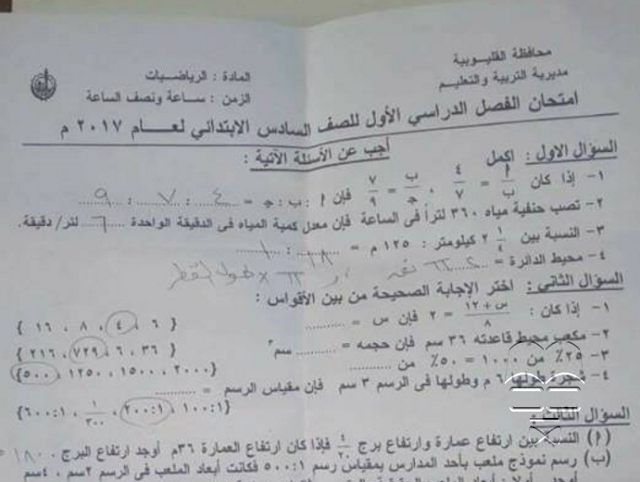 محافظة القليوبية
مديرية التربية والتعليم
المادة : الرياضيات
الزمن : ساعة ونصف الساعة
امتحان الفصل الدراسي الأول للصف السادس الابتدائي لعام ٢٠١٧ م
أجب عن الأسئلة الآتية :
السؤال الاول : اكمل
١- إذا كان أ/ب = ٤/٧ ، ب/جـ = ٧/٩ فإن أ : ب : جـ = ٤ : ٧ : ٩
٢- تصب حنفية مياه ٣٦٠ لتراً فى الساعة فإن معدل كمية المياه فى الدقيقة الواحدة ٦ لتر/ دقيقة.
٣- النسبة بين ١/٤ ٢ كيلومتر : ١٢٥ م = ١٨ : ١
٤- محيط الدائرة = ٢ π نق أو π × طول القطر
السؤال الثاني : اختر الإجابة الصحيحة من بين الأقواس :
١- إذا كان : س + ١٢/٨ = ٢ فإن س = ........... { ٦ ، ٤ ، ٨ ، ١٦ }
٢- مكعب محيط قاعدته ٣٦ سم فإن حجمه = ........... سم٣ { ٣٦ ، ٦ ، ٧٢٩ ، ٢١٦ }
٣- ٢٥٪ من ١٠٠٠ = ٥٠٪ من ........... { ٢٠٠٠ ، ١٥٠٠ ، ١٢٥٠ ، ٥٠٠ }
٤- شجرة طولها ٦ م وطولها فى الرسم ٣ سم فإن مقياس الرسم = ........... { ١٠٠:١ ، ٢٠٠:١ ، ١/٣٠٠ ، ٦٠٠:١ }
السؤال الثالث :
(أ) النسبة بين ارتفاع عمارة وارتفاع برج ١/٢٠ فإذا كان ارتفاع العمارة ٣٦م أوجد ارتفاع البرج
(ب) رسم نموذج ملعب بأحد المدارس بمقياس رسم ٥٠٠:١ فكانت أبعاد الملعب فى الرسم ٢سم ، ٤سم